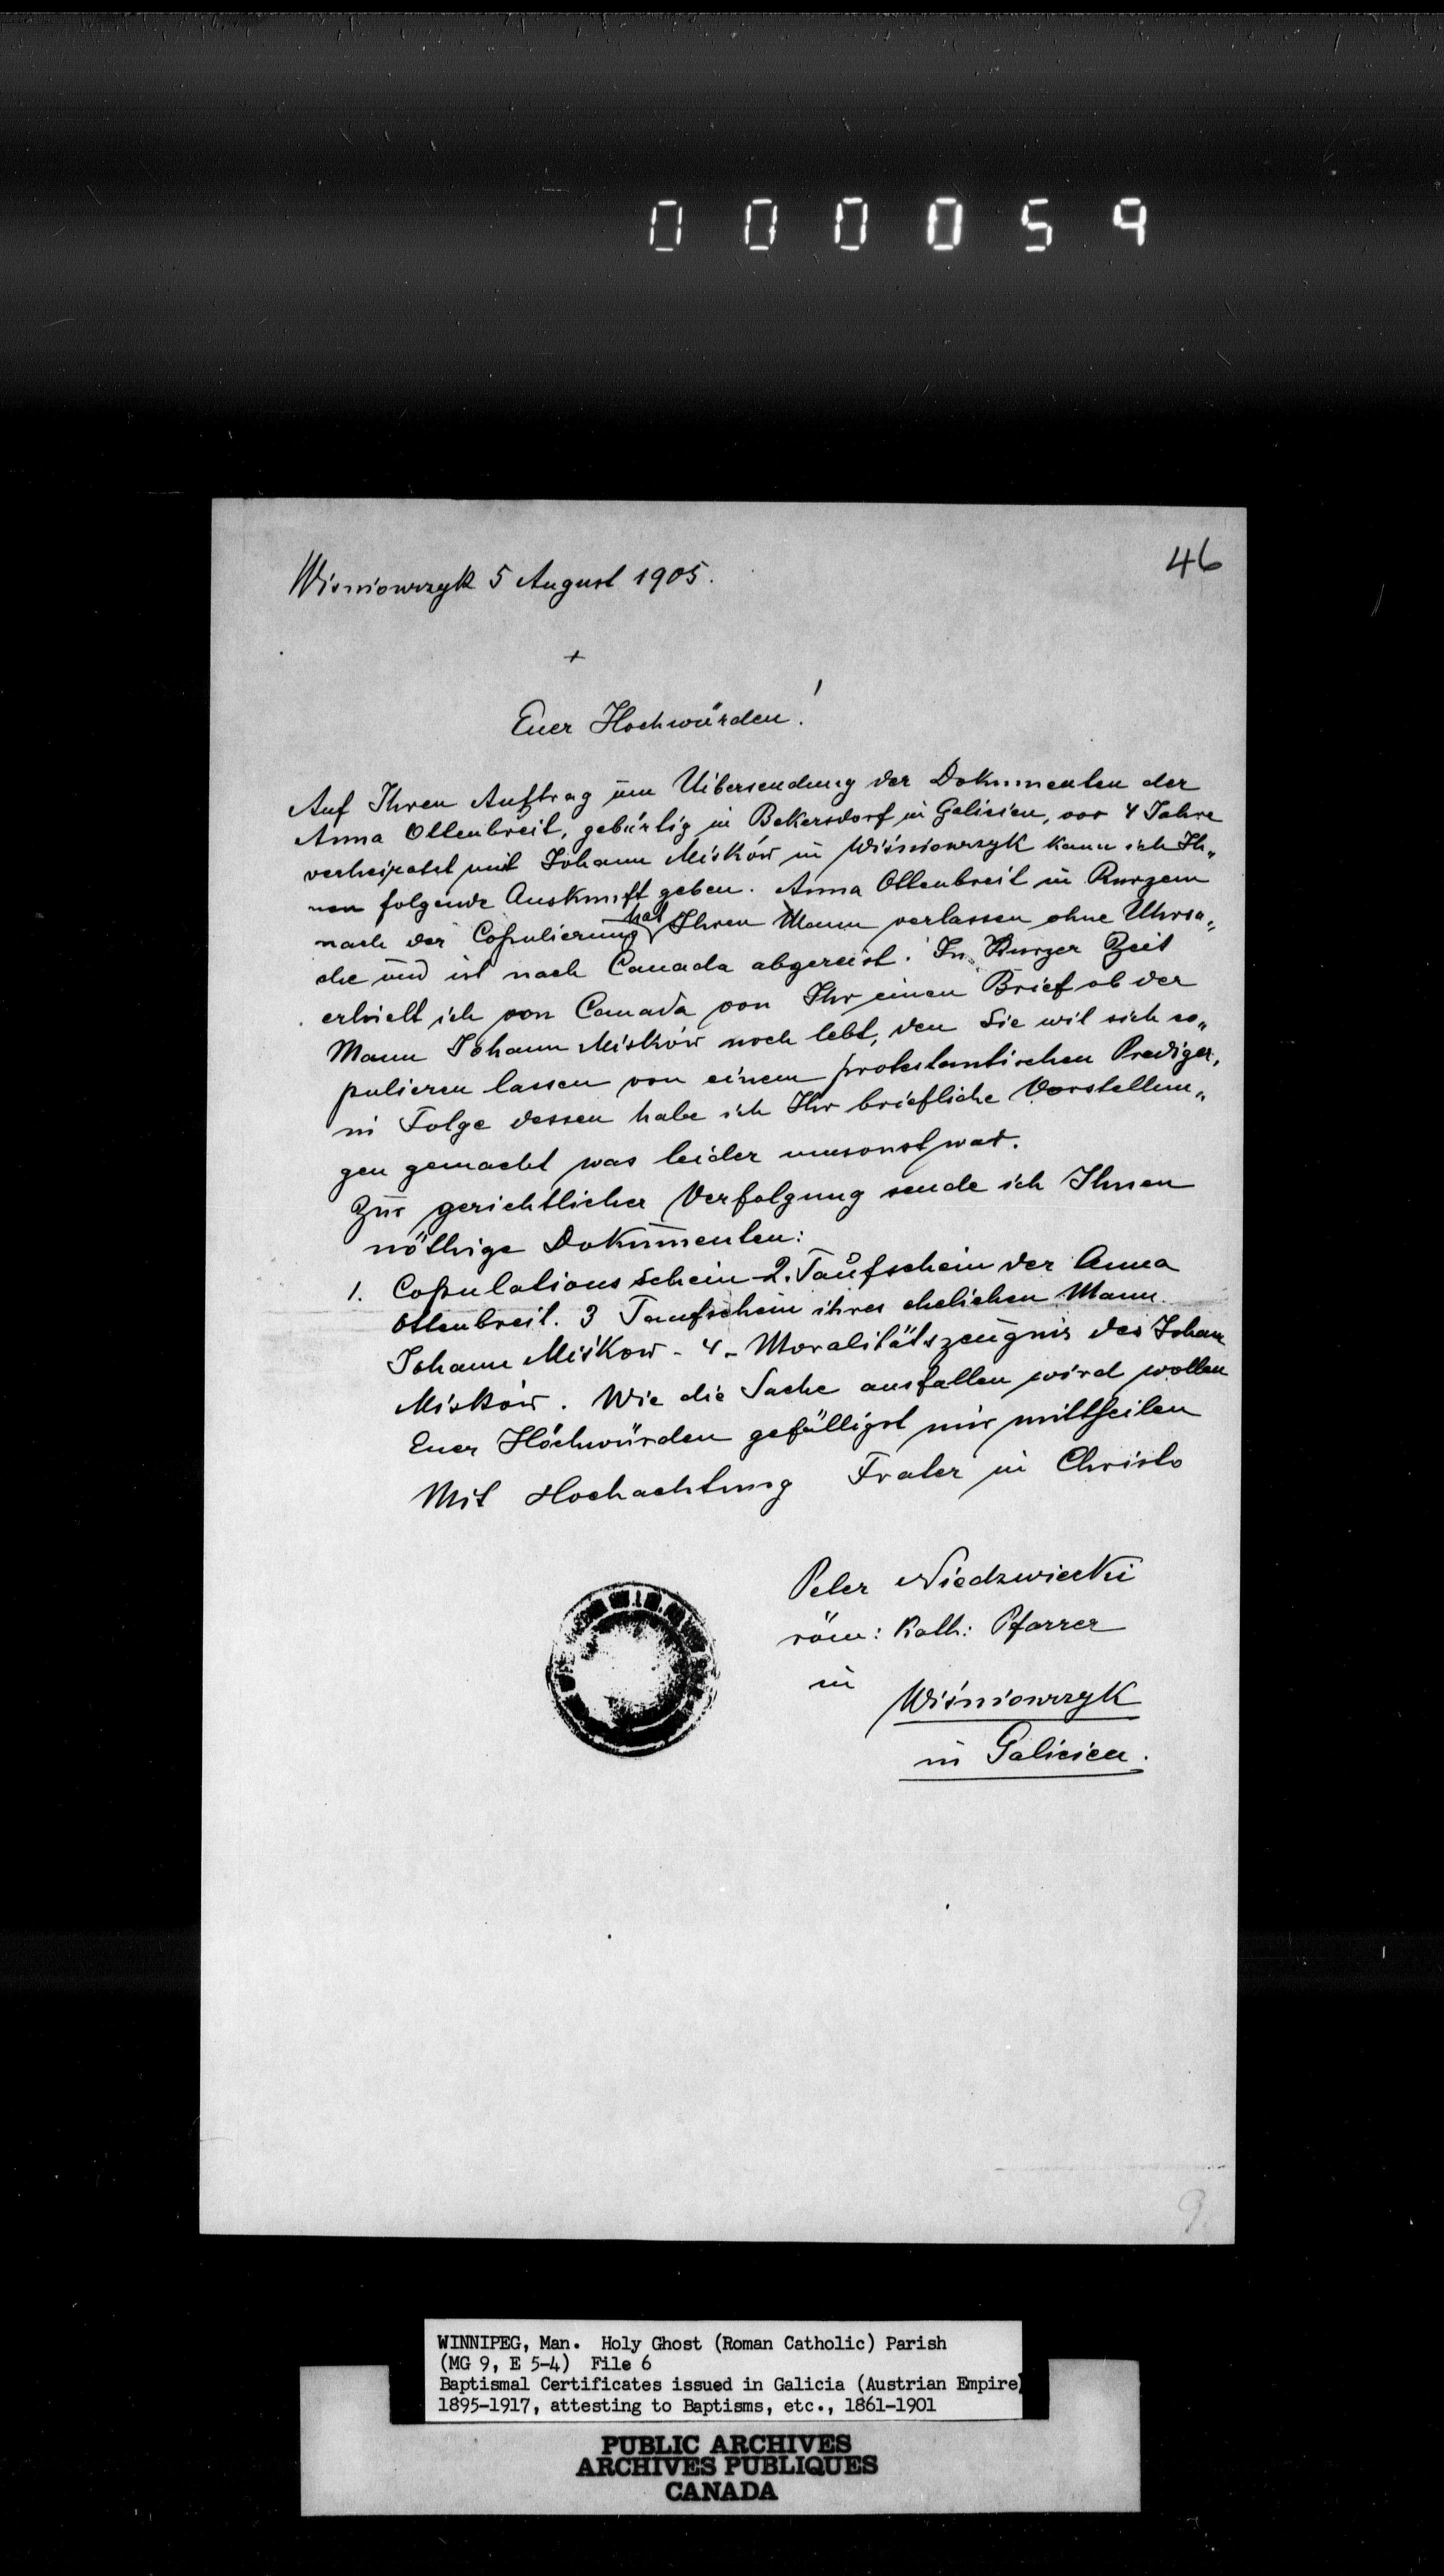 000059
46
Wiśniowczyk 5 August 1905.
+
Euer Hochwürden!
Auf Ihren Auftrag um Uibersendung der Dokumenten der
Anna Ottenbreit, gebürtig in Bekersdorf in Galicien, vor 4 Jahre
verheiratet mit Johann Miśków in Wiśniowczyk kann ich Ih„
nen folgende Auskunft geben. Anna Ottenbreit in Kurzem
nach der Copulierung hat Ihren Mann verlassen ohne Uhrsa„
che und ist nach Canada abgereist. In Kurzer Zeit
erhielt ich von Canada von Ihr einen Brief ob der
Mann Johann Miśków noch lebt, den Sie wil sich co„
pulieren lassen von einem protestantischen Prediger,
in Folge dessen habe ich Ihr briefliche Vorstellun„
gen gemacht was leider umsonst war.
Zur gerichtlicher Verfolgung sende ich Ihnen
nöthige Dokumenten:
1. Copulations Schein - 2. Taufschein der Anna
Ottenbreit. 3 Taufschein ihres ehelichen Mann
Johann Miśkow - 4 - Moralitätszeugnis des Johan
Miśków. Wie die Sache ausfallen wird wollen
Euer Hochwürden gefälligst mir mittheilen
Mit Hochachtung Frater in Christo
Peter Niedzwiecki
röm: Kath: Pfarrer
in Wiśniowczyk
in Galicien.
9.
WINNIPEG, Man. Holy Ghost (Roman Catholic) Parish
(MG 9, E 5-4) File 6
Baptismal Certificates issued in Galicia (Austrian Empire)
1895-1917, attesting to Baptisms, etc., 1861-1901
PUBLIC ARCHIVES
ARCHIVES PUBLIQUES
CANADA